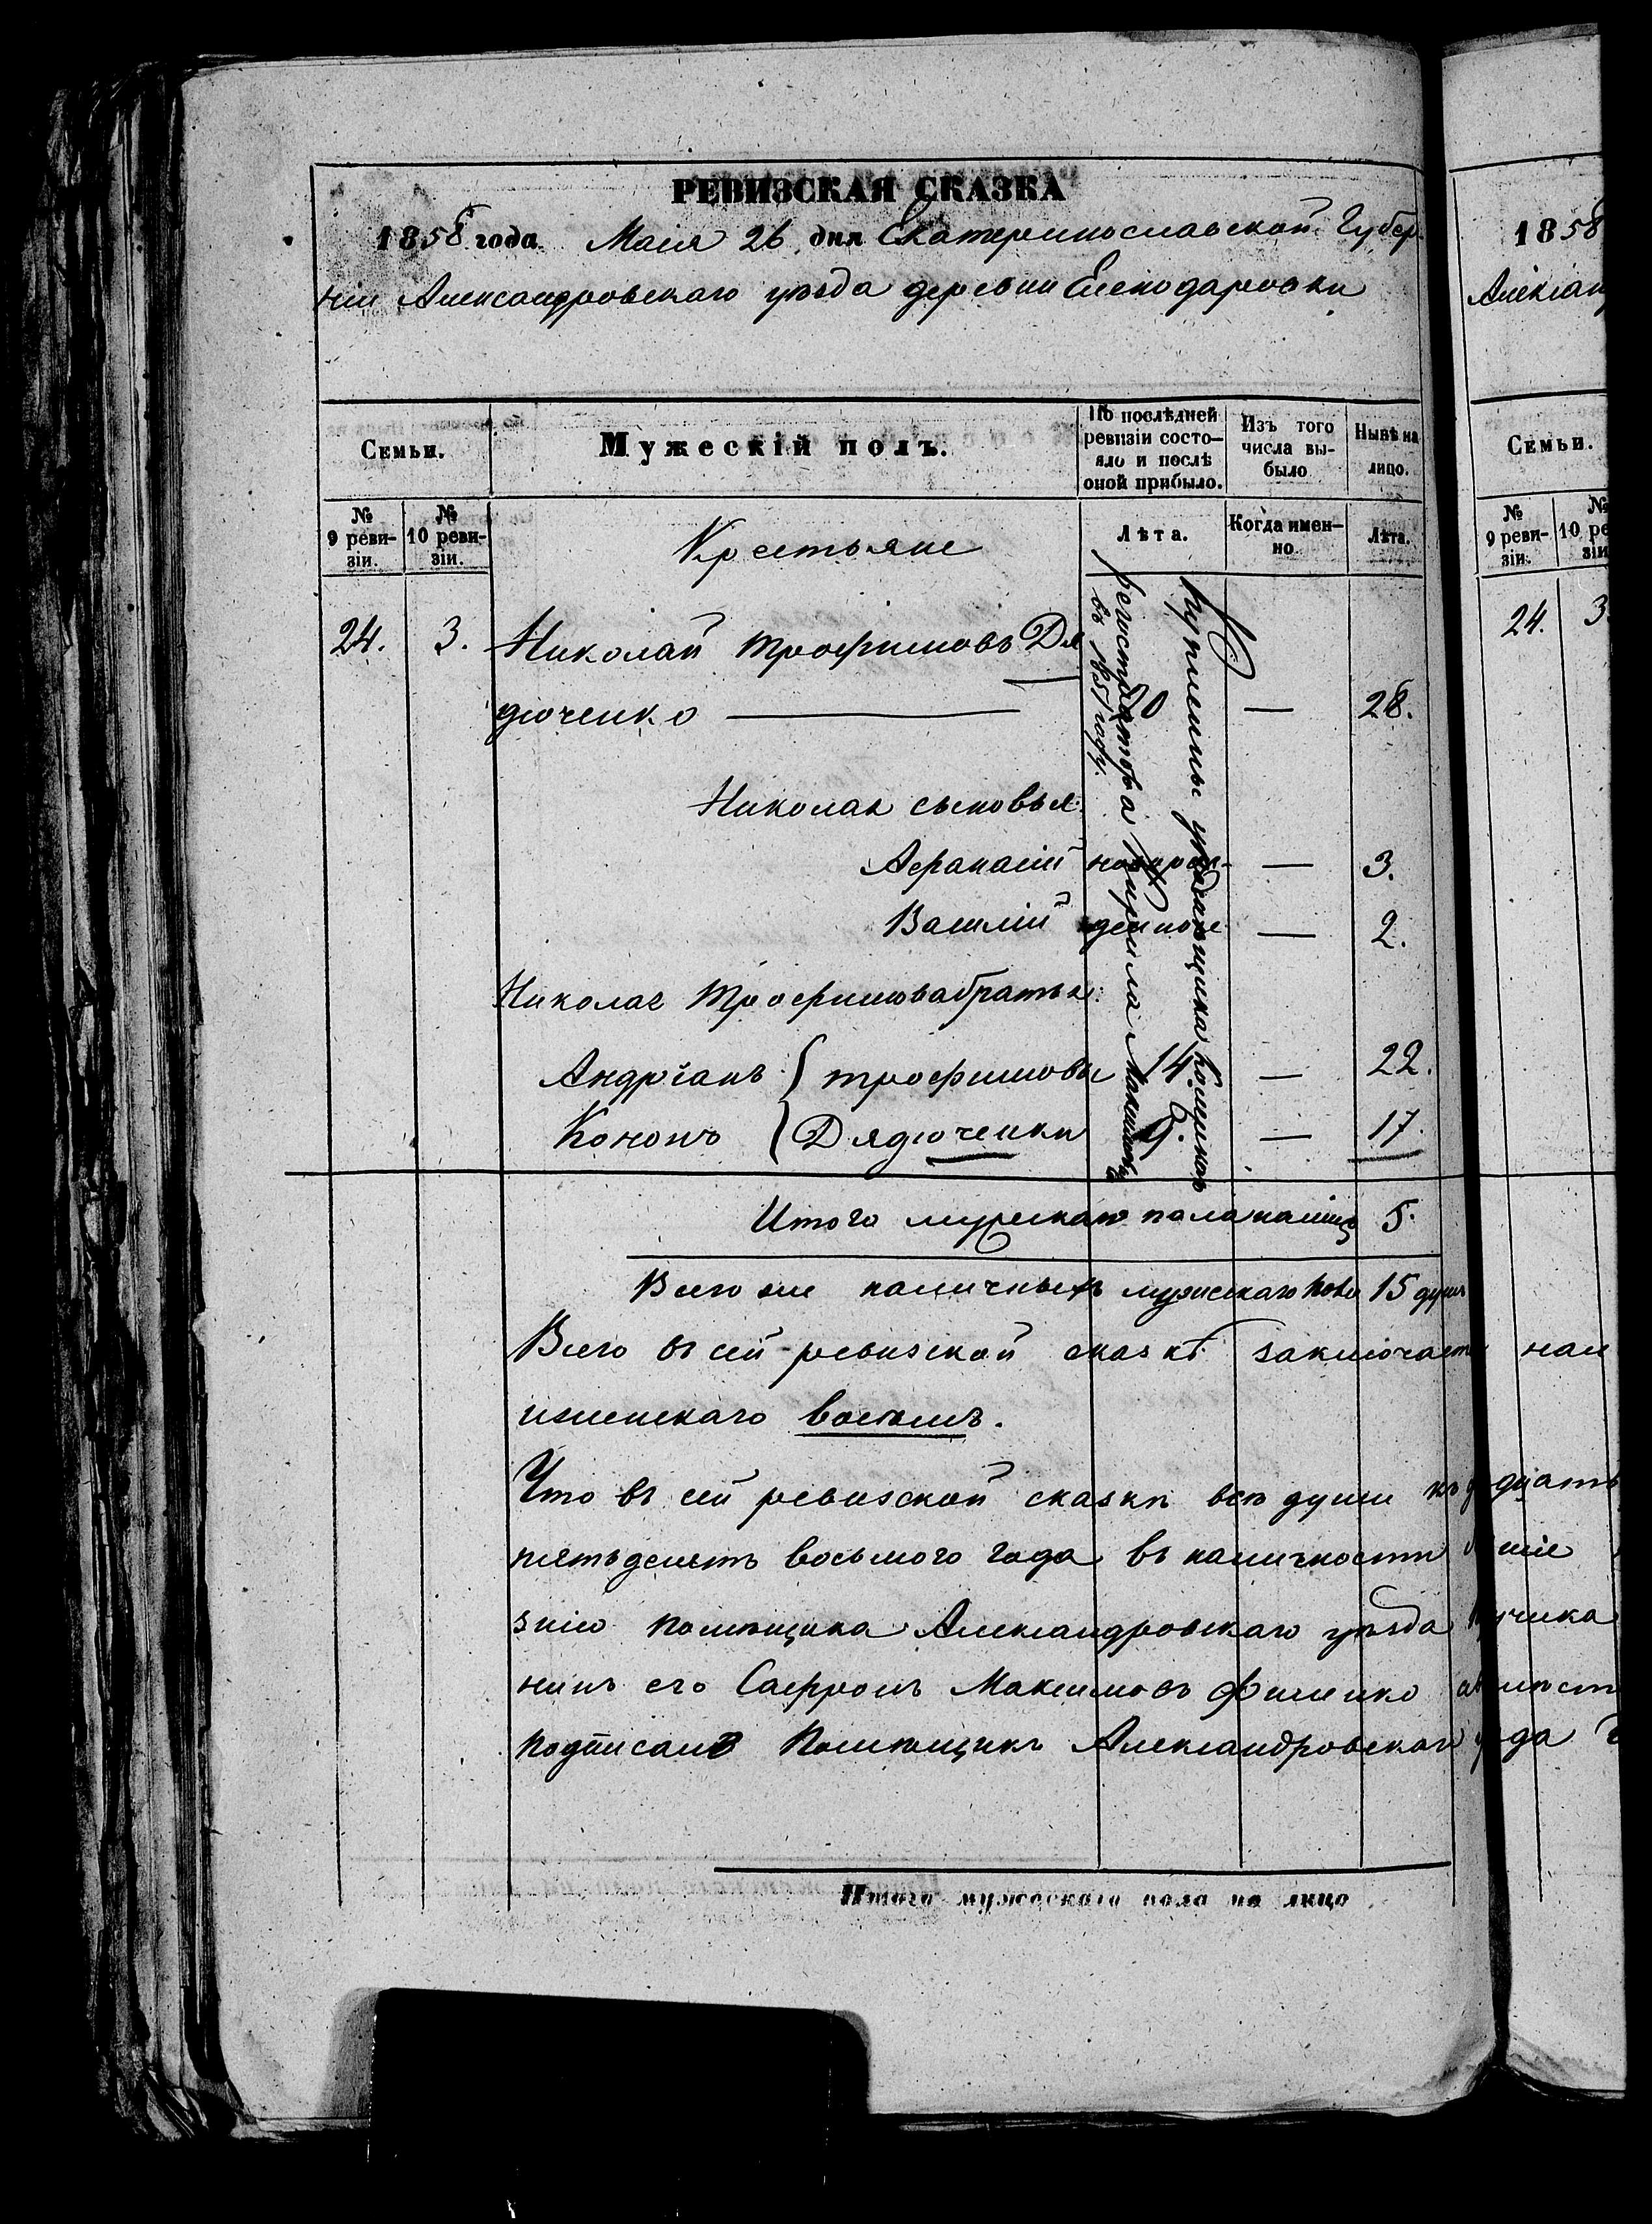 РЕВИЗСКАЯ СКАЗКА
1858 года Маія 26 дня Екатеринославской Губер-
ніи Александровскаго уѣзда деревни Еленодаровки
Семьи.
Мужескій полъ.
По послѣдней ревизіи состо-
яло и послѣ оной прибыло.
Изъ того числа вы-
было
Нынѣ на лицо.
№ 9 реви-
зіи.
№ 10 реви-
зіи.
Крестьяне
Лѣта.
Когда имен-
но
Лѣта.
24. 3. Николай Трофимовъ Дя
дюченко — — 28.
Николая сыновья:
Афанасій новорож- — 3.
Василій денные — 2.
Николая Трофимова братья:
Андріанъ { трофимовы 14. — 22.
Кононъ { Дядюченки 9. — 17.
Купленные у помѣщика
регистратора Кирила
въ 1851 году.
Итого мужескаго пола налицо 5.
Всего же наличныхъ мужескаго пола 15 душъ
Всего въ сей ревизской сказкѣ заключает
женскаго восемь.
Что въ сей ревизской сказкѣ всѣ души
пятьдесятъ восьмого года въ наличности
помѣщика Александровскаго уѣзда
его Сафронъ Максимовъ Фименко
подписалъ Помѣщикъ Александровскаго
Итого мужескаго пола на лицо
1858
Алексан
Семьи.
№ 9 реви-
зіи.
№ 10 ре
зіи
24. 3